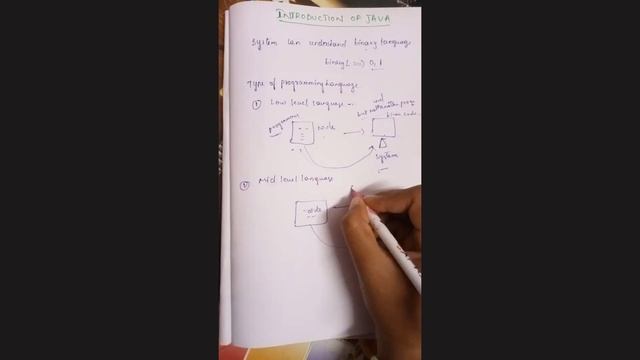 INTRODUCTION OF JAVA
System can understand binary language
binary (=>) 0, 1
Type of programming Language
① Low level language -
programmer
code
system
② Mid level language
code